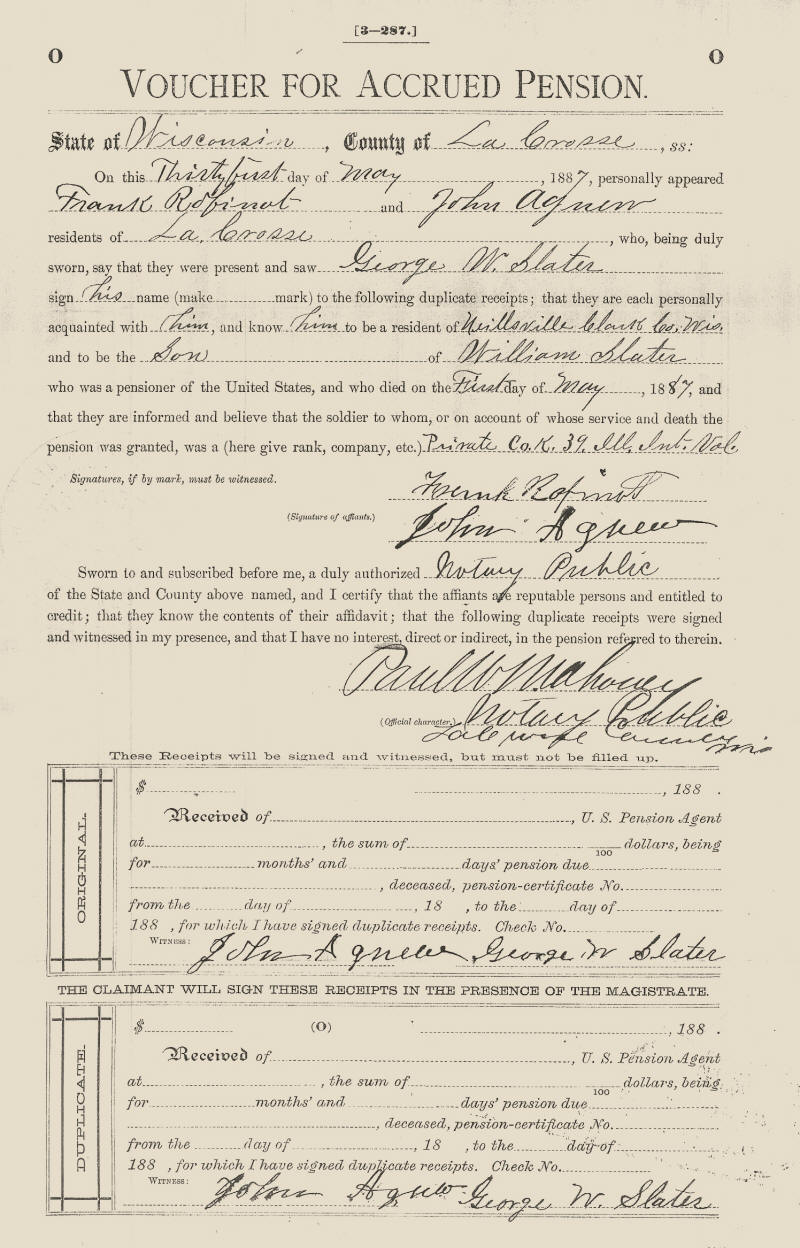 [3—287.]
O O
VOUCHER FOR ACCRUED PENSION.
State of Wisconsin, County of La Crosse, ss:
On this Thirtyfirst day of May, 1887, personally appeared
Frank Robinot and John Agnew
residents of La Crosse, who, being duly
sworn, say that they were present and saw George W. Slater
sign his name (make mark) to the following duplicate receipts; that they are each personally
acquainted with him, and know him to be a resident of Neillsville Clark Co. Wis.
and to be the Son of William Slater
who was a pensioner of the United States, and who died on the First day of May, 1887, and
that they are informed and believe that the soldier to whom, or on account of whose service and death the
pension was granted, was a (here give rank, company, etc.) Private Co. K. 39. Ill. Inf. Vol.
Signatures, if by mark, must be witnessed.
Frank Robinott
(Signature of affiants.)
John Agnew
Sworn to and subscribed before me, a duly authorized Notary Public
of the State and County above named, and I certify that the affiants are reputable persons and entitled to
credit; that they know the contents of their affidavit; that the following duplicate receipts were signed
and witnessed in my presence, and that I have no interest, direct or indirect, in the pension referred to therein.
Paul W Mahoney
(Official character.) Notary Public
County Wis
These Receipts will be signed and witnessed, but must not be filled up.
ORIGINAL.
$ , 188 .
Received of , U. S. Pension Agent
at , the sum of 100 dollars, being
for months' and days' pension due
, deceased, pension-certificate No.
from the day of , 18 , to the day of
188 , for which I have signed duplicate receipts. Check No.
WITNESS: John Agnew George W Slater
THE CLAIMANT WILL SIGN THESE RECEIPTS IN THE PRESENCE OF THE MAGISTRATE.
DUPLICATE.
$ (O) , 188 .
Received of , U. S. Pension Agent
at , the sum of 100 dollars, being
for months' and days' pension due
, deceased, pension-certificate No.
from the day of , 18 , to the day of
188 , for which I have signed duplicate receipts. Check No.
WITNESS: John Agnew George W. Slater